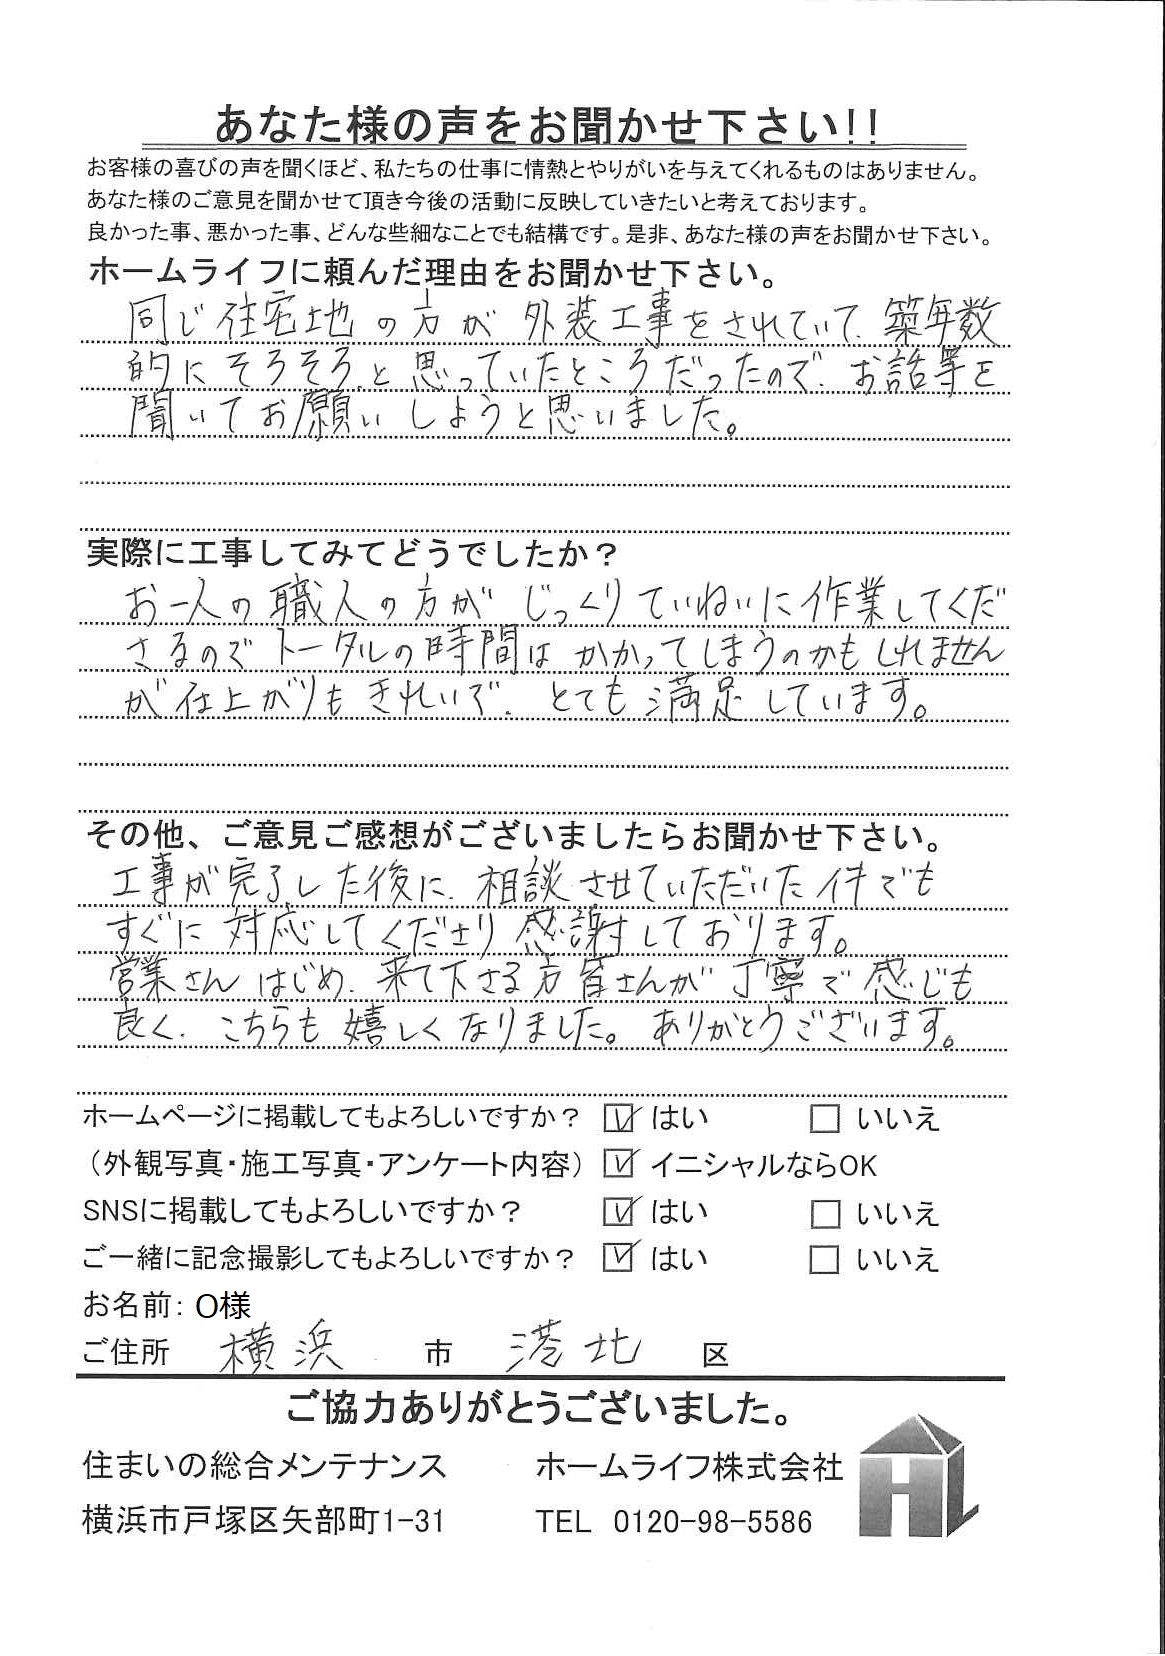 あなた様の声をお聞かせ下さい!!
お客様の喜びの声を聞くほど、私たちの仕事に情熱とやりがいを与えてくれるものはありません。
あなた様のご意見を聞かせて頂き今後の活動に反映していきたいと考えております。
良かった事、悪かった事、どんな些細なことでも結構です。是非、あなた様の声をお聞かせ下さい。
ホームライフに頼んだ理由をお聞かせ下さい。
同じ住宅地の方が外装工事をされていて、築年数
的にそろそろ、と思っていたところだったので、お話等を
聞いてお願いしようと思いました。
実際に工事してみてどうでしたか？
お一人の職人の方がじっくりていねいに作業してくだ
さるのでトータルの時間はかかってしまうのかもしれません
が仕上がりもきれいで、とても満足しています。
その他、ご意見ご感想がございましたらお聞かせ下さい。
工事が完了した後に、相談させていただいた件でも
すぐに対応してくださり感謝しております。
営業さんはじめ、来て下さる方皆さんが丁寧で感じも
良く、こちらも嬉しくなりました。ありがとうございます。
ホームページに掲載してもよろしいですか？ ☑ はい □ いいえ
（外観写真・施工写真・アンケート内容） ☑ イニシャルならOK
SNSに掲載してもよろしいですか？ ☑ はい □ いいえ
ご一緒に記念撮影してもよろしいですか？ ☑ はい □ いいえ
お名前: O様
ご住所 横浜 市 港北 区
ご協力ありがとうございました。
住まいの総合メンテナンス ホームライフ株式会社
横浜市戸塚区矢部町1-31 TEL 0120-98-5586
HL